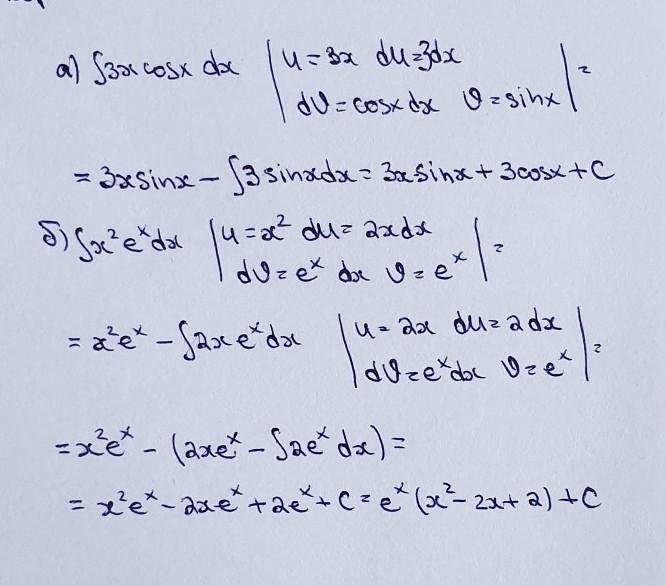 а) ∫3x cosx dx | u = 3x du = 3dx
dv = cosx dx v = sinx | =
= 3x sinx − ∫3 sinx dx = 3x sinx + 3cosx + C
б) ∫x²eˣdx | u = x² du = 2xdx
dv = eˣ dx v = eˣ | =
= x²eˣ − ∫2x eˣdx | u = 2x du = 2dx
dv = eˣdx v = eˣ | =
= x²eˣ − (2xeˣ − ∫2eˣ dx) =
= x²eˣ − 2xeˣ + 2eˣ + C = eˣ (x² − 2x + 2) + C